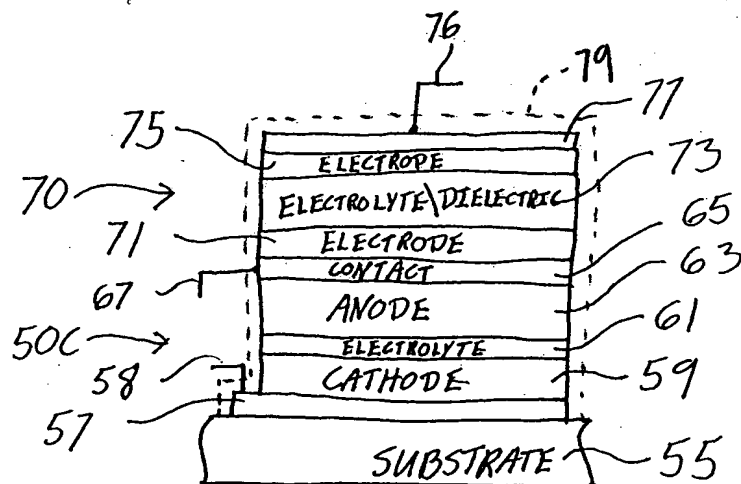 76
79
77
75
ELECTROPE
73
70
ELECTROLYTE\DIELECTRIC
65
71
ELECTRODE
63
CONTACT
67
ANODE
61
50C
ELECTROLYTE
58
CATHODE
59
57
SUBSTRATE
55